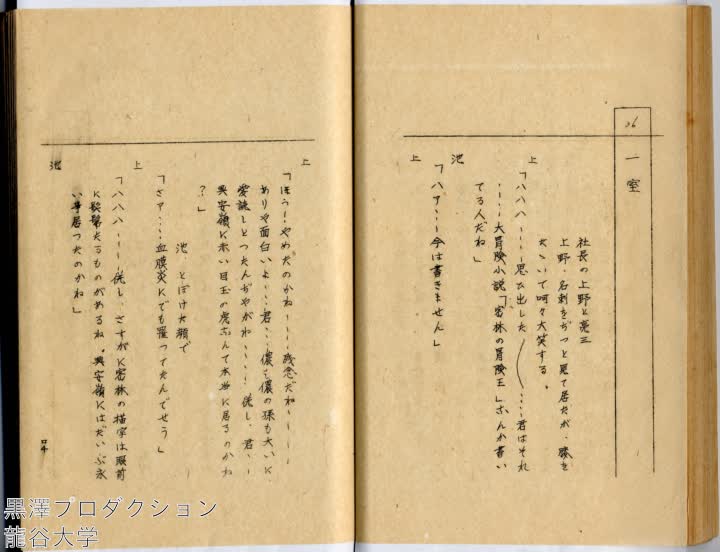 26
一室
社長の上野と亮三
上野・名刺をぢつと見て居たが、膝を
たゝいて呵々大笑する。
上
「ハハハ‥‥思ひ出した‥‥君はそれ
‥‥大冒険小説「密林の冒険王」なんか書い
てる人だね」
池
上
「ハァ‥‥今は書きません」
上
「ほう!やめたのかね‥‥残念だね‥‥
ありや面白いよ‥‥君‥‥儂も儂の孫も大いに
愛読しとつたんぢやがね‥‥併し、君‥‥
興安嶺に赤い目玉の虎なんて本当に居るのかね
?」
池 とぼけた顔で
「さァ‥‥血膜炎にでも罹つてたんでせう」
上
「ハハハ‥‥併し、さすがに密林の描写は眼前
に髣髴たるものがあるね。興安嶺にはだいぶ永
い事居つたのかね」
池
黒澤プロダクション
龍谷大学